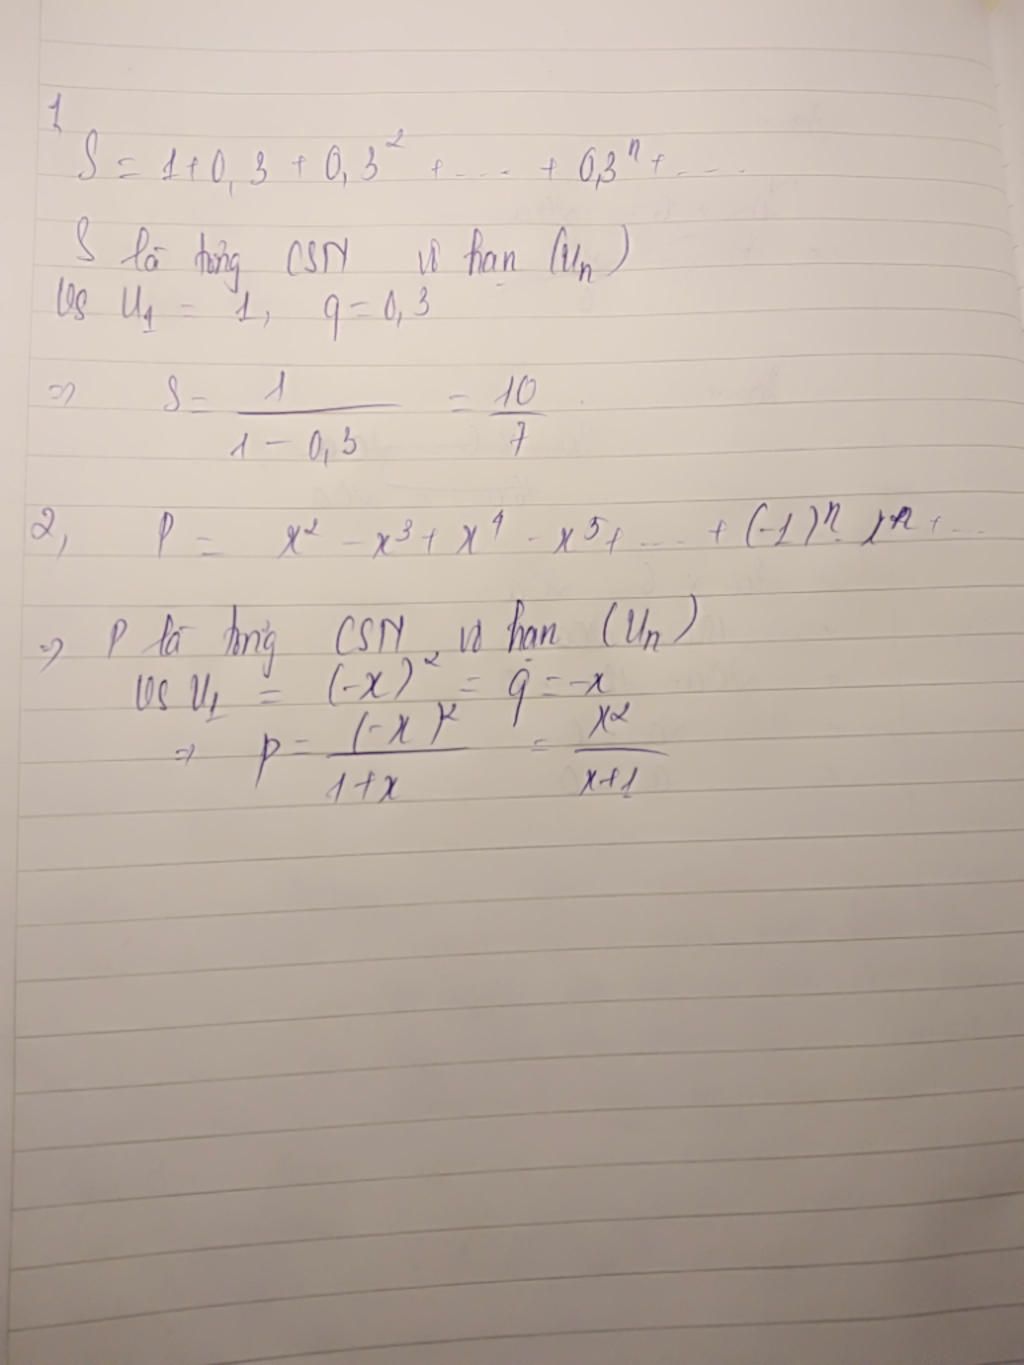 1
S = 1 + 0,3 + 0,3² + ... + 0,3ⁿ + ...
S là tổng CSN vô hạn (Uₙ)
Vs U₁ = 1, q = 0,3
=> S = 1/(1 - 0,3) = 10/7
2, P = x² - x³ + x⁴ - x⁵ + ... + (-1)ⁿ. xⁿ + ...
=> P là tổng CSN vô hạn (Uₙ)
Vs U₁ = (-x)² = q = -x
=> P = (-x)²/(1+x) = x²/(x+1)